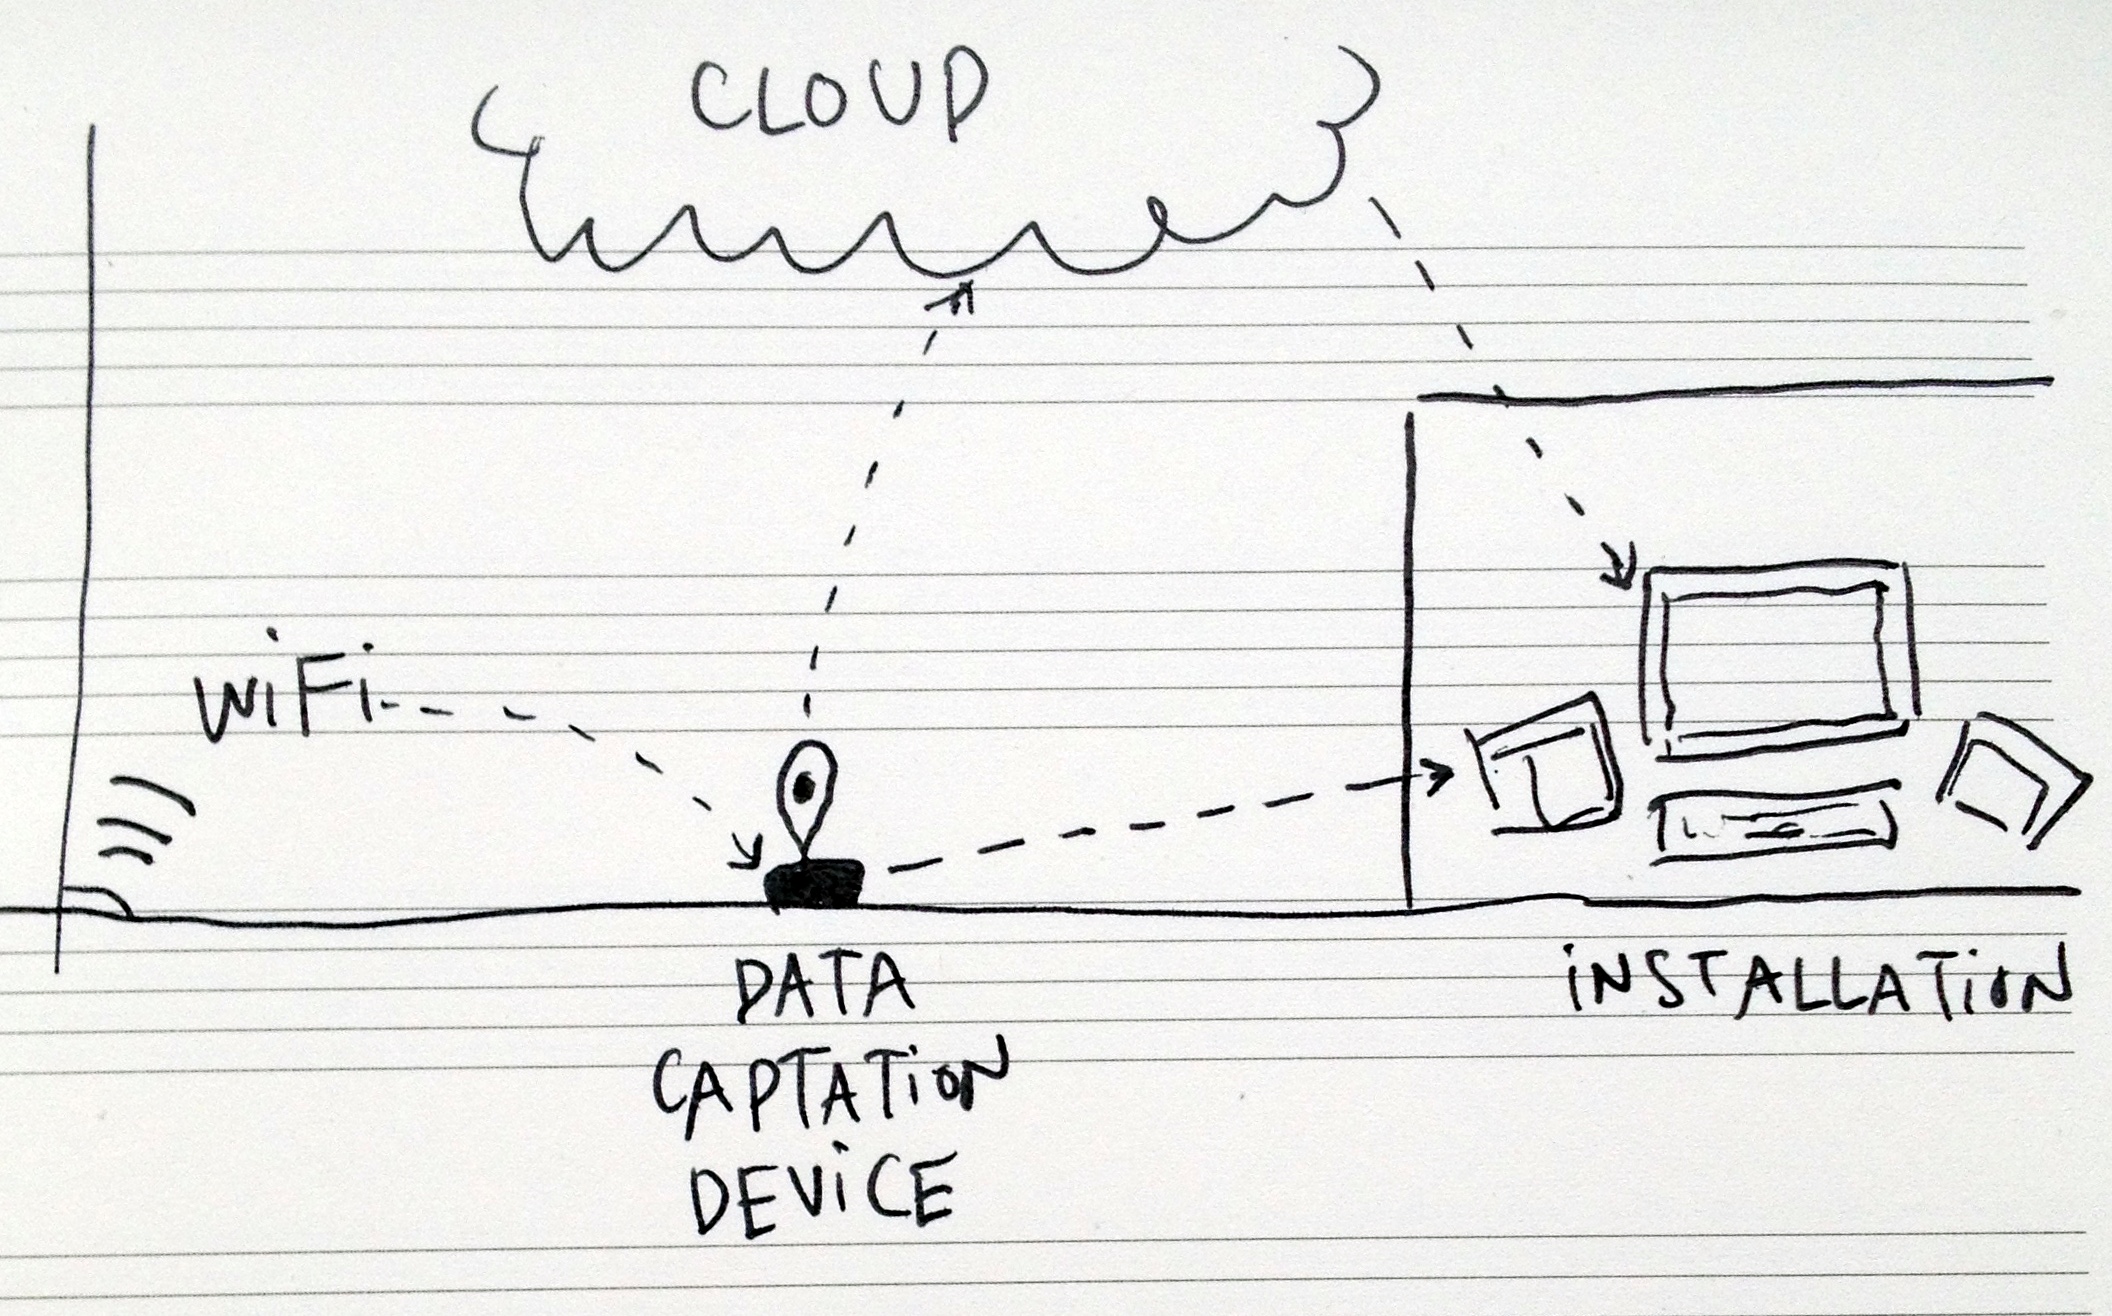 CLOUD
WiFi
DATA
CAPTATiON
DEViCE
iNSTALLATiON